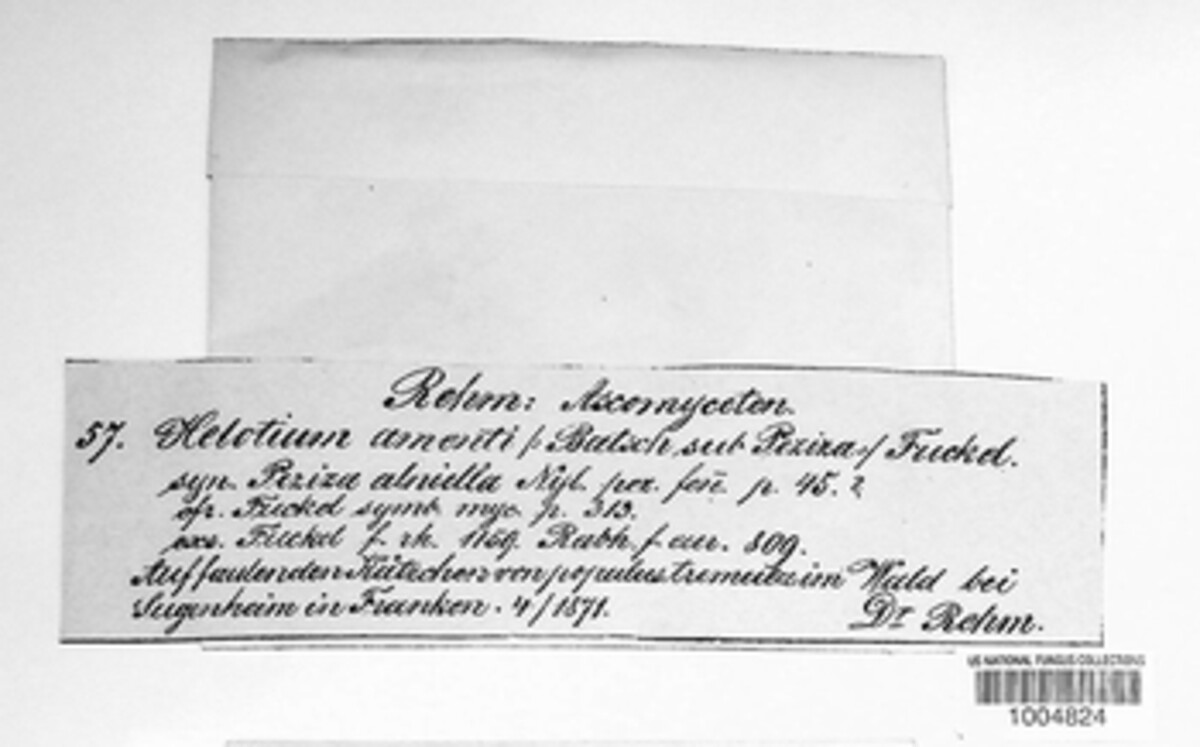 Rehm: Ascomyceten.
57. Helotium amenti /: Batsch sub Peziza :/ Fuckel.
syn. Peziza alniella Nyl. pez. fen̄. p. 45. ?
cfr. Fuckel symb. myc. p. 313.
exs. Fuckel f. rh. 1159. Rabh. f. eur. 809.
Auf faulenden Kätzchen von populus tremula im Wald bei
Sugenheim in Franken. 4/1871.
Dr Rehm.
US NATIONAL FUNGUS COLLECTIONS
1004824